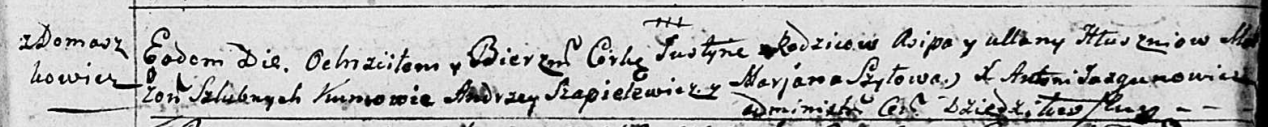 z Domasz
kowicz
Eodem Die. Ochrzciłem y Bierzm Córkę Justynę z Rodziców Asipa y Ullany Hłuszniow Mał
żon Szlubnych Kumowie Andrzey Szapielewicz y Marjana Szyłowa X Antoni Jazgunowicz
administr Cer Dziedzi